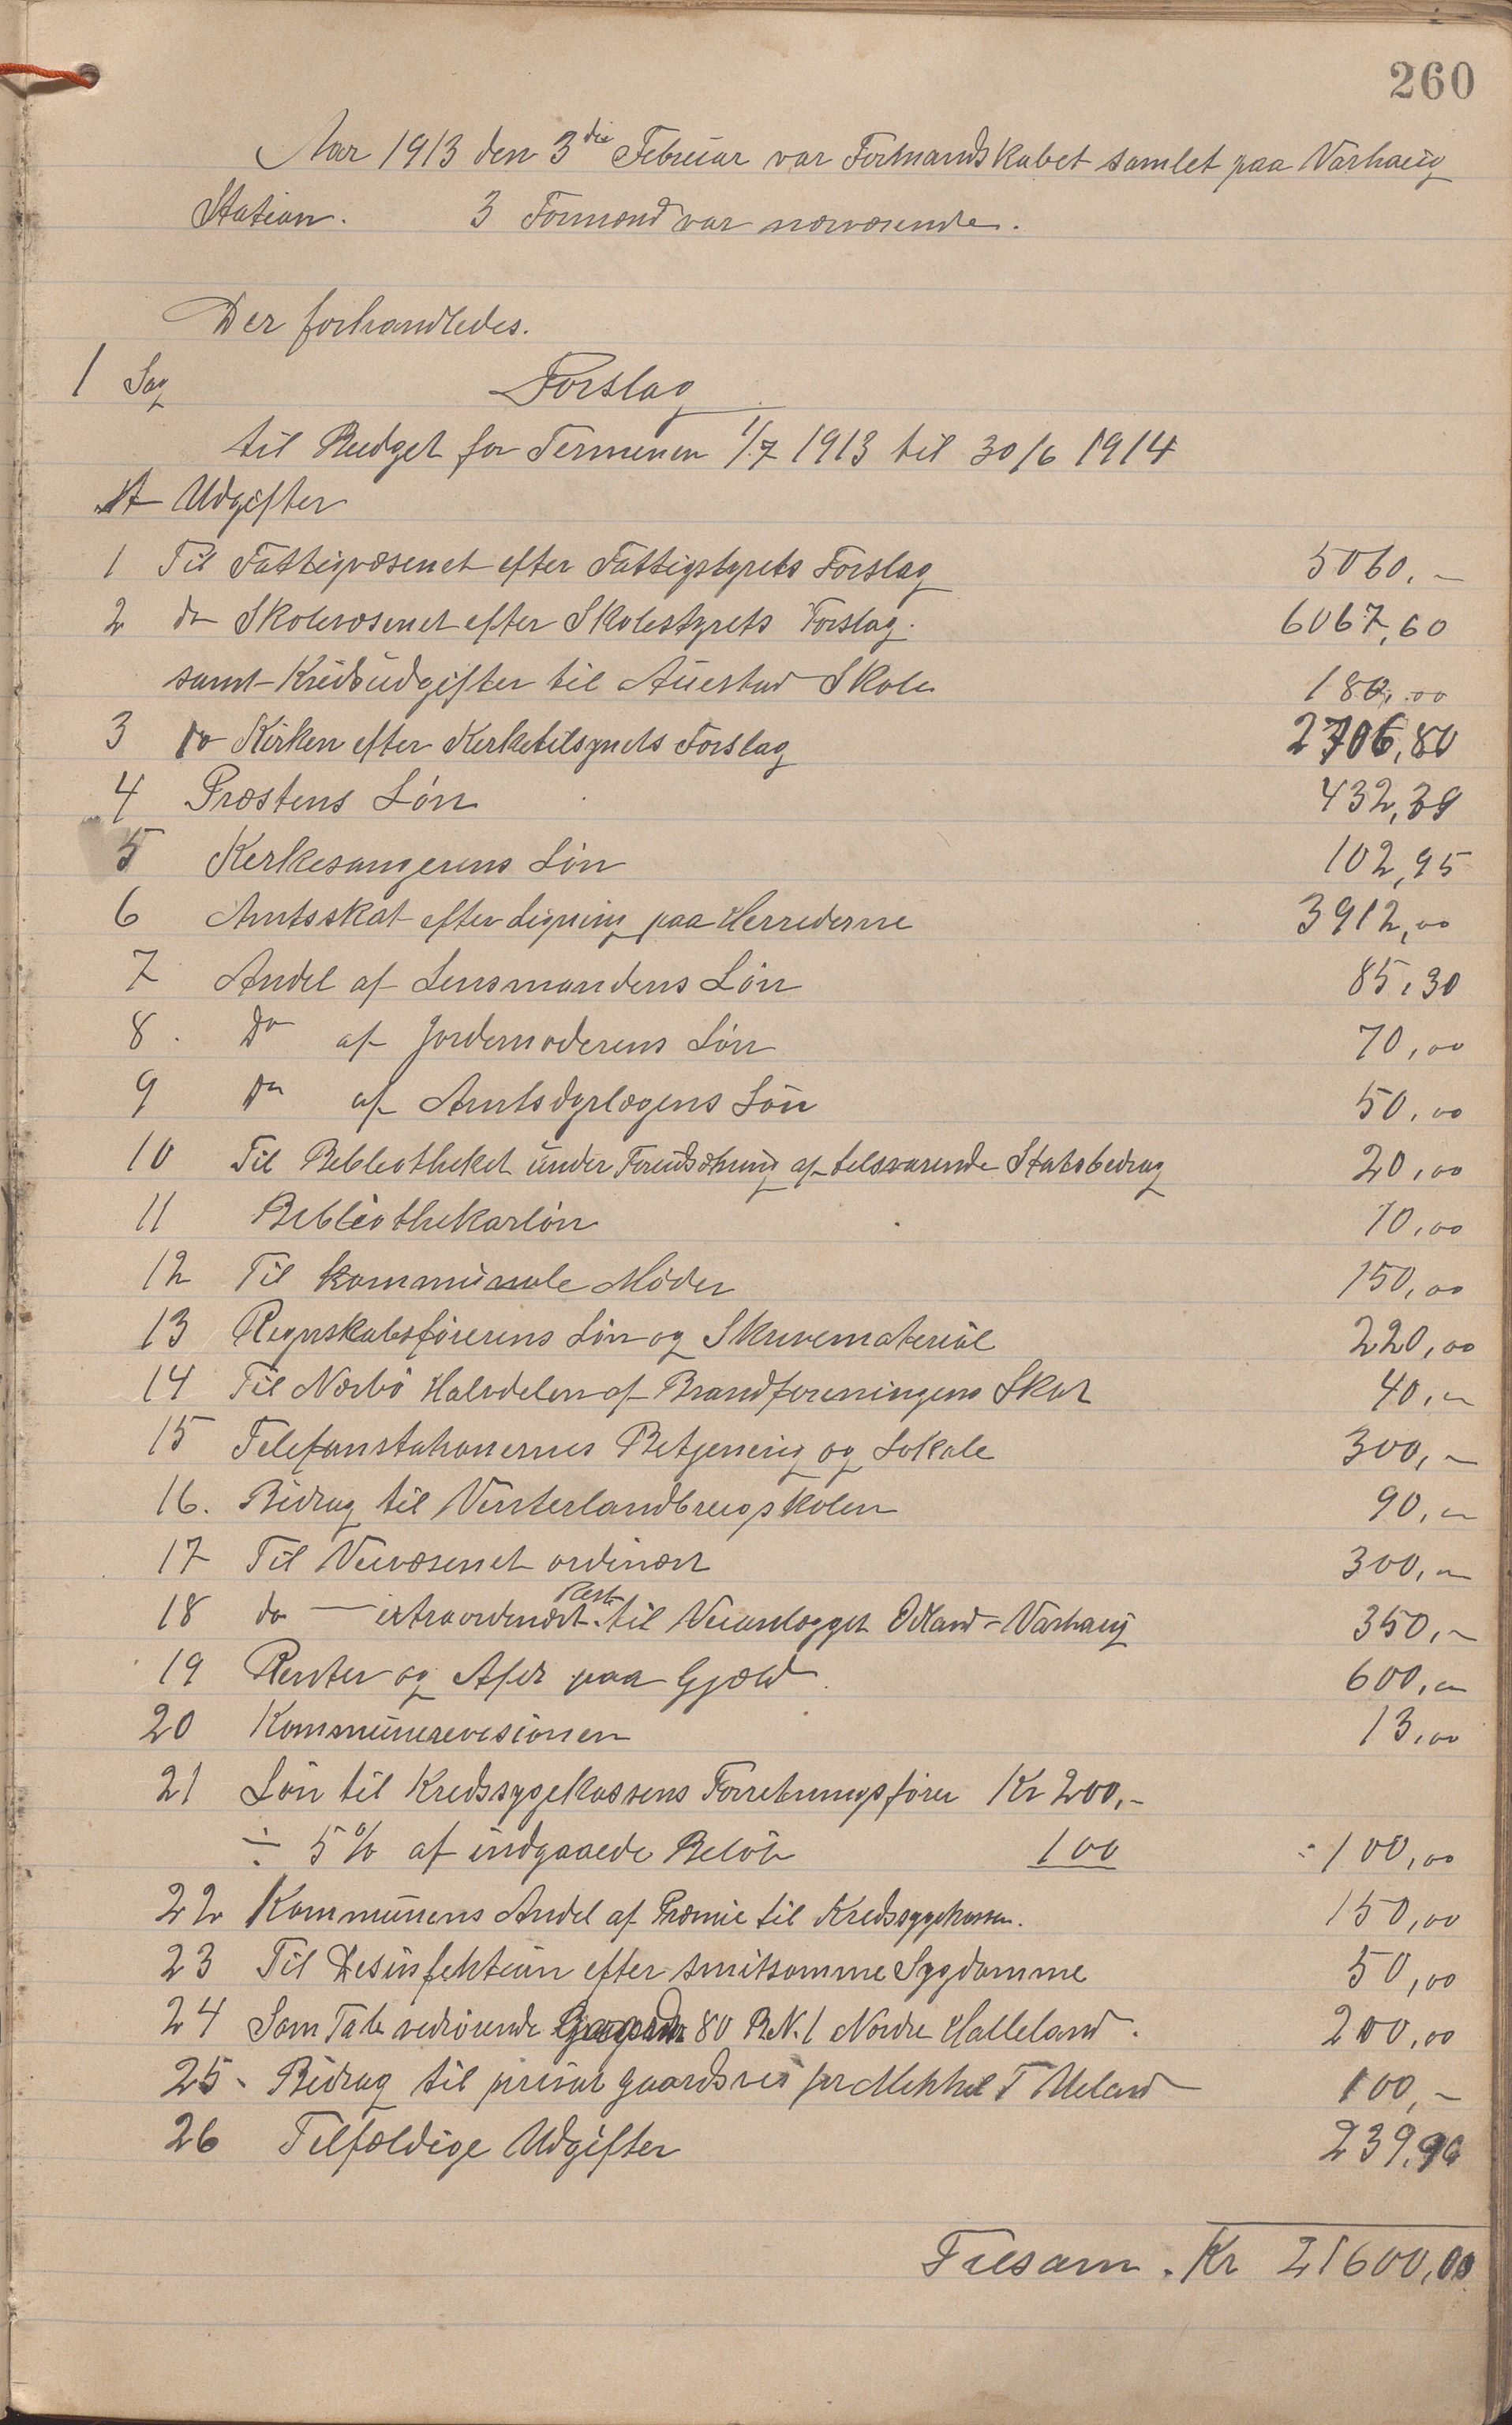 260
Aar 1913 den 3die Februar var Formandskabet samlet paa Varhaug
Station. 3 Formænd var nærværende.
Der forhandledes.
1 Sag Forslag
til Budget for Terminen 1/7 1913 til 30/6 1914
A Udgifter
1 Til Fattigvæsenet efter Fattigstyrets Forslag 5060,-
2 do Skolevæsenet efter Skolestyrets Forslag. 6067,60
samt Kredsudgifter til Auestad Skole 180,00
3 do Kirken efter Kirketilsynets Forslag 2706,80
4 Præstens Løn 432,39
5 Kirkesangerens Løn 102,95
6 Amtsskat efter Ligning paa Herrederne 3912,00
7 Andel af Lensmandens Løn 85,30
8. Do af Jordemoderens Løn 70,00
9 Do af Amtsdyrlægens Løn 50,00
10 Til Bibliotheket under Forudsætning af tilsvarende Statsbidrag 20,00
11 Bibliothekarløn 10,00
12 Til kommunale Møder 150,00
13 Regnskabsførerens Løn og Skrivemateriál 220,00
14 Til Nærbø Halvdelen af Brandforeningens Skat 40,-
15 Telefonstationernes Betjening og Lokale 300,-
16. Bidrag til Vinterlandbrugsskolen 90,-
17 Til Veivæsenet ordinært 300,-
18 do — extraordinært. Rest til Veianlægget Ødland-Varhaug 350,-
19 Renter og Afdr paa Gjæld 600,-
20 Kommunerevisionen 13,00
21 Løn til Kredssygekassens Forretningsfører Kr 200,-
÷ 5% af indgaaede Beløb 100 = 100,00
22 Kommunens Andel af Præmie til Kredssygekassen. 150,00
23 Til Desinfektion efter smitsomme Sygdomme 50,00
24 Som Tab vedrørende 80 B.N. 1 Nordre Halleland. 200,00
25. Bidrag til privat gaardsvei for Mikkel T Ueland 100,-
26 Tilfældige Udgifter 239,96
Tilsam. Kr 21600,00